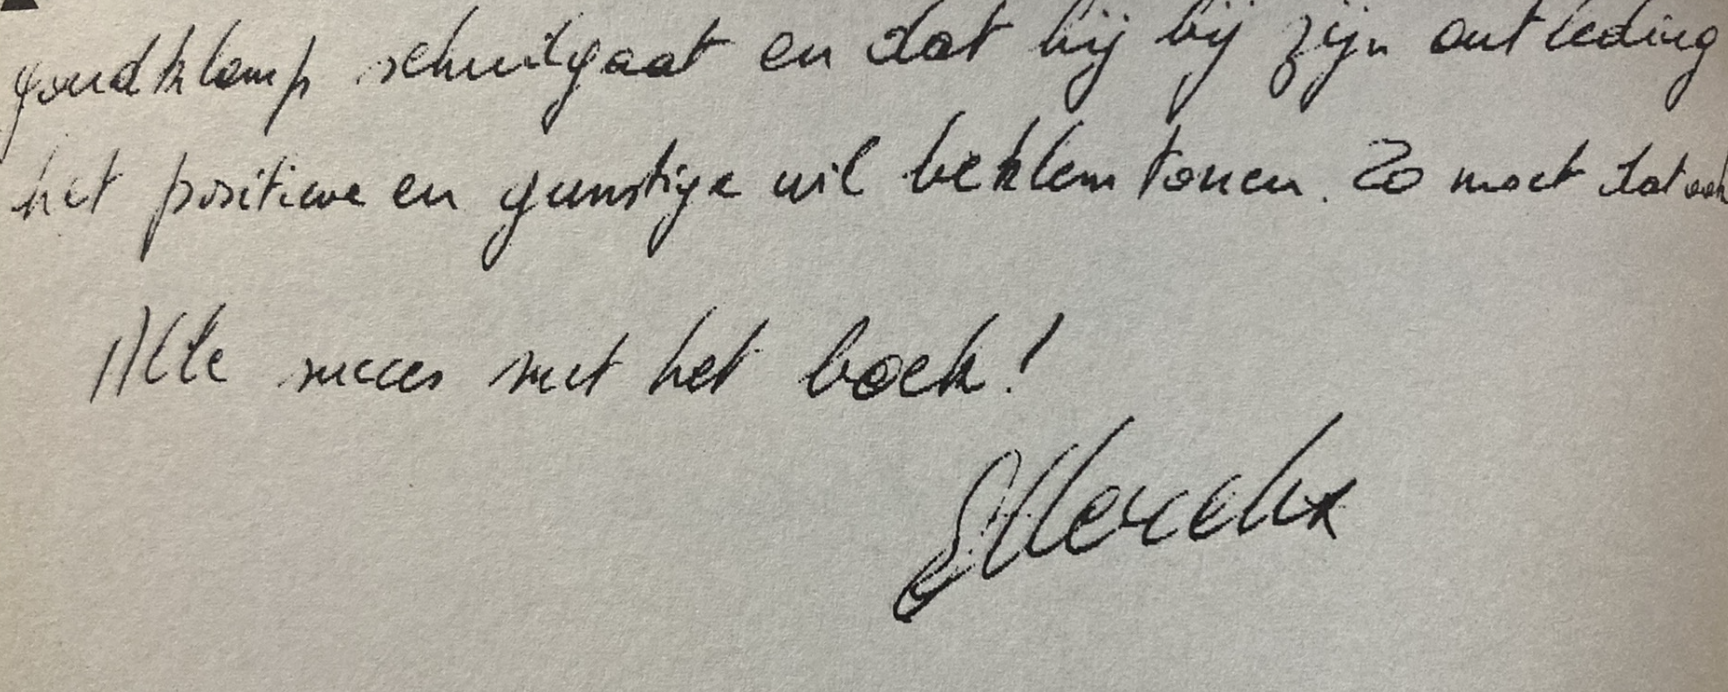 goudklomp schuilgaat en dat hij bij zijn ontleding
het positieve en gunstige wil beklemtonen. Zo moet dat ook
Alle succes met het boek!
EMerckx